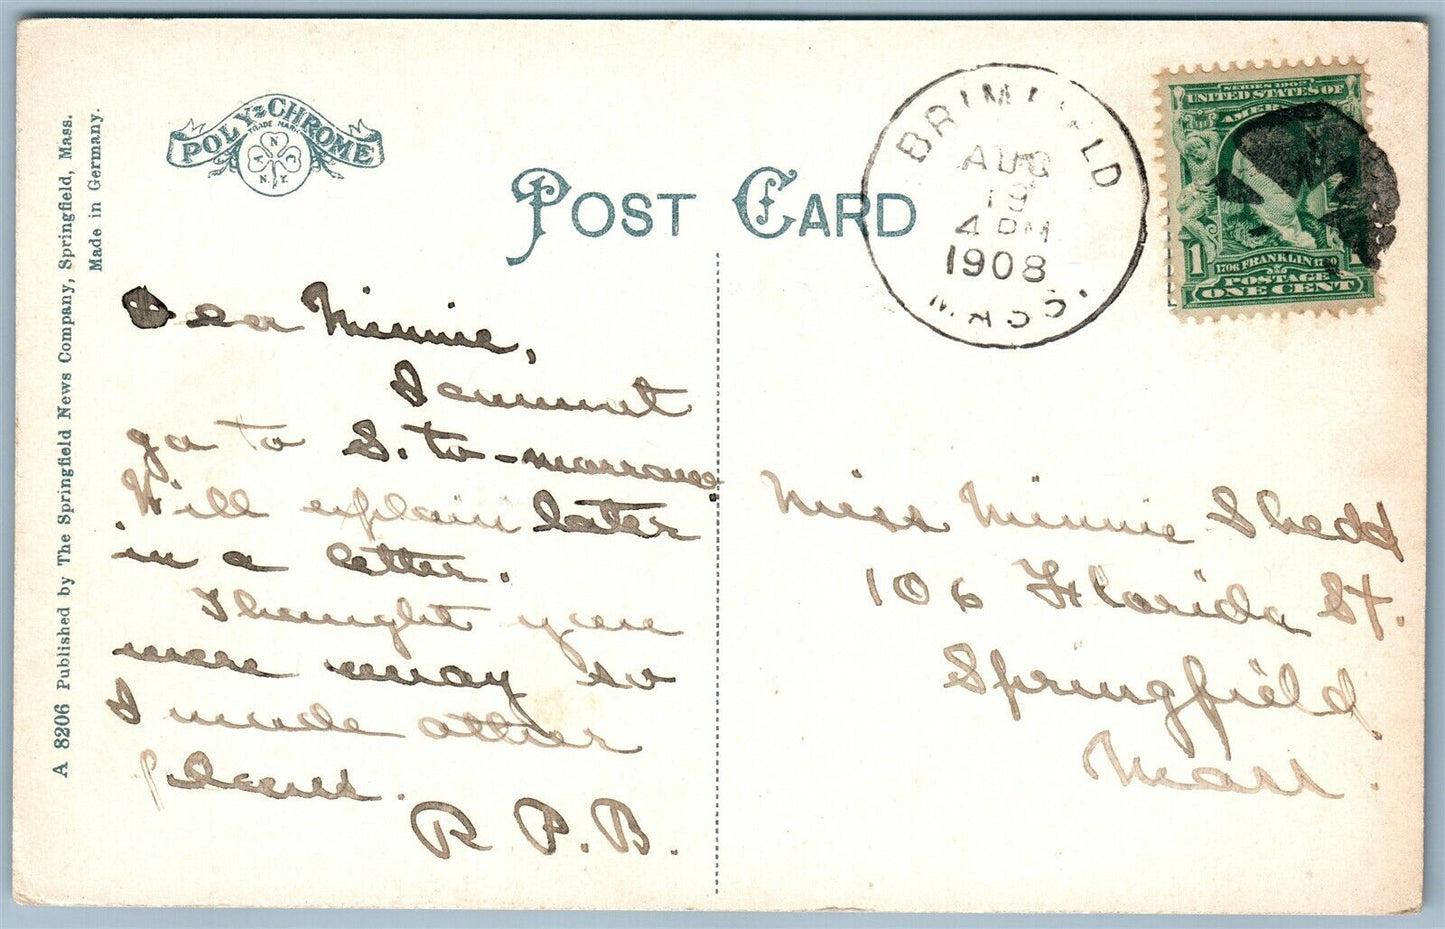 POLY-CHROME
TRADE MARK
A N C
N.Y.
POST CARD
BRIMFIELD
AUG
19
4 PM
1908
MASS.
SERIES 1902
UNITED STATES OF
AMERICA
1706 FRANKLIN 1790
POSTAGE
1 ONE CENT 1
A 8206 Published by The Springfield News Company, Springfield, Mass.
Made in Germany.
Dear Minnie,
I cannot
go to S. to-morrow.
Will explain later
in a letter.
Thought you
were away so
I made other
plans.
R. P. B.
Miss Minnie Shedd
106 Florida St.
Springfield
Mass.